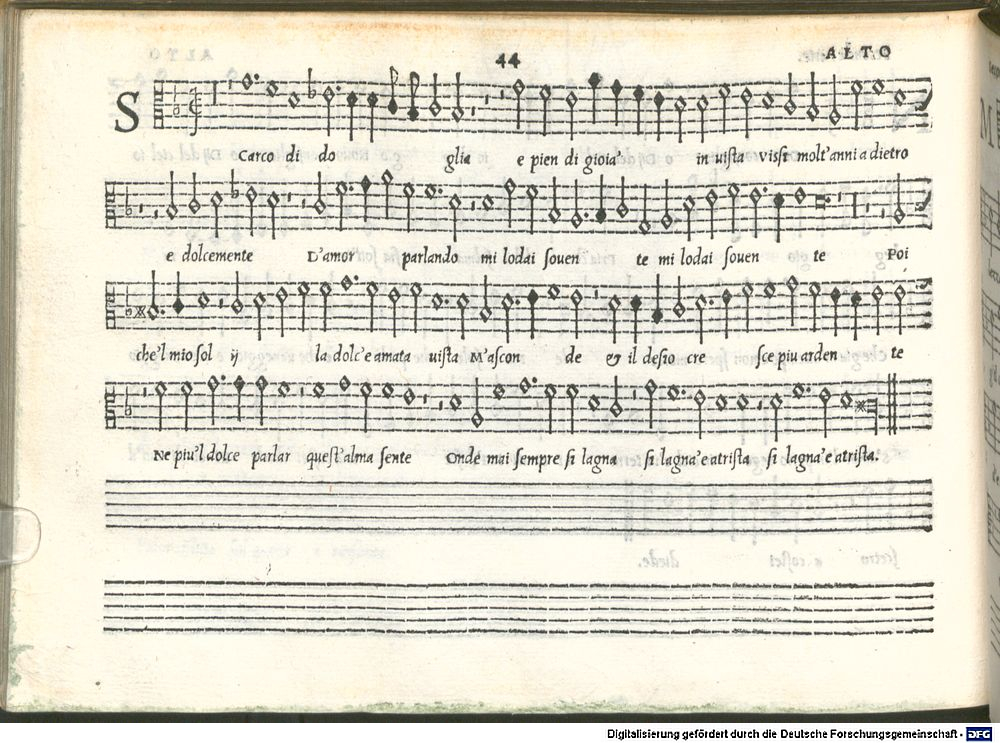 44 ALTO
SCarco di do glia e pien di gioia' in uista vissi molt'anni a dietro
e dolcemente D'amor parlando mi lodai souen te mi lodai souen te Poi
che'l mio sol ij la dolc'e amata uista M'ascon de & il desio cre sce piu arden te
Ne piu'l dolce parlar quest'alma sente Onde mai sempre si lagna si lagna'e atrista si lagna'e atrista.
Digitalisierung gefördert durch die Deutsche Forschungsgemeinschaft - DFG